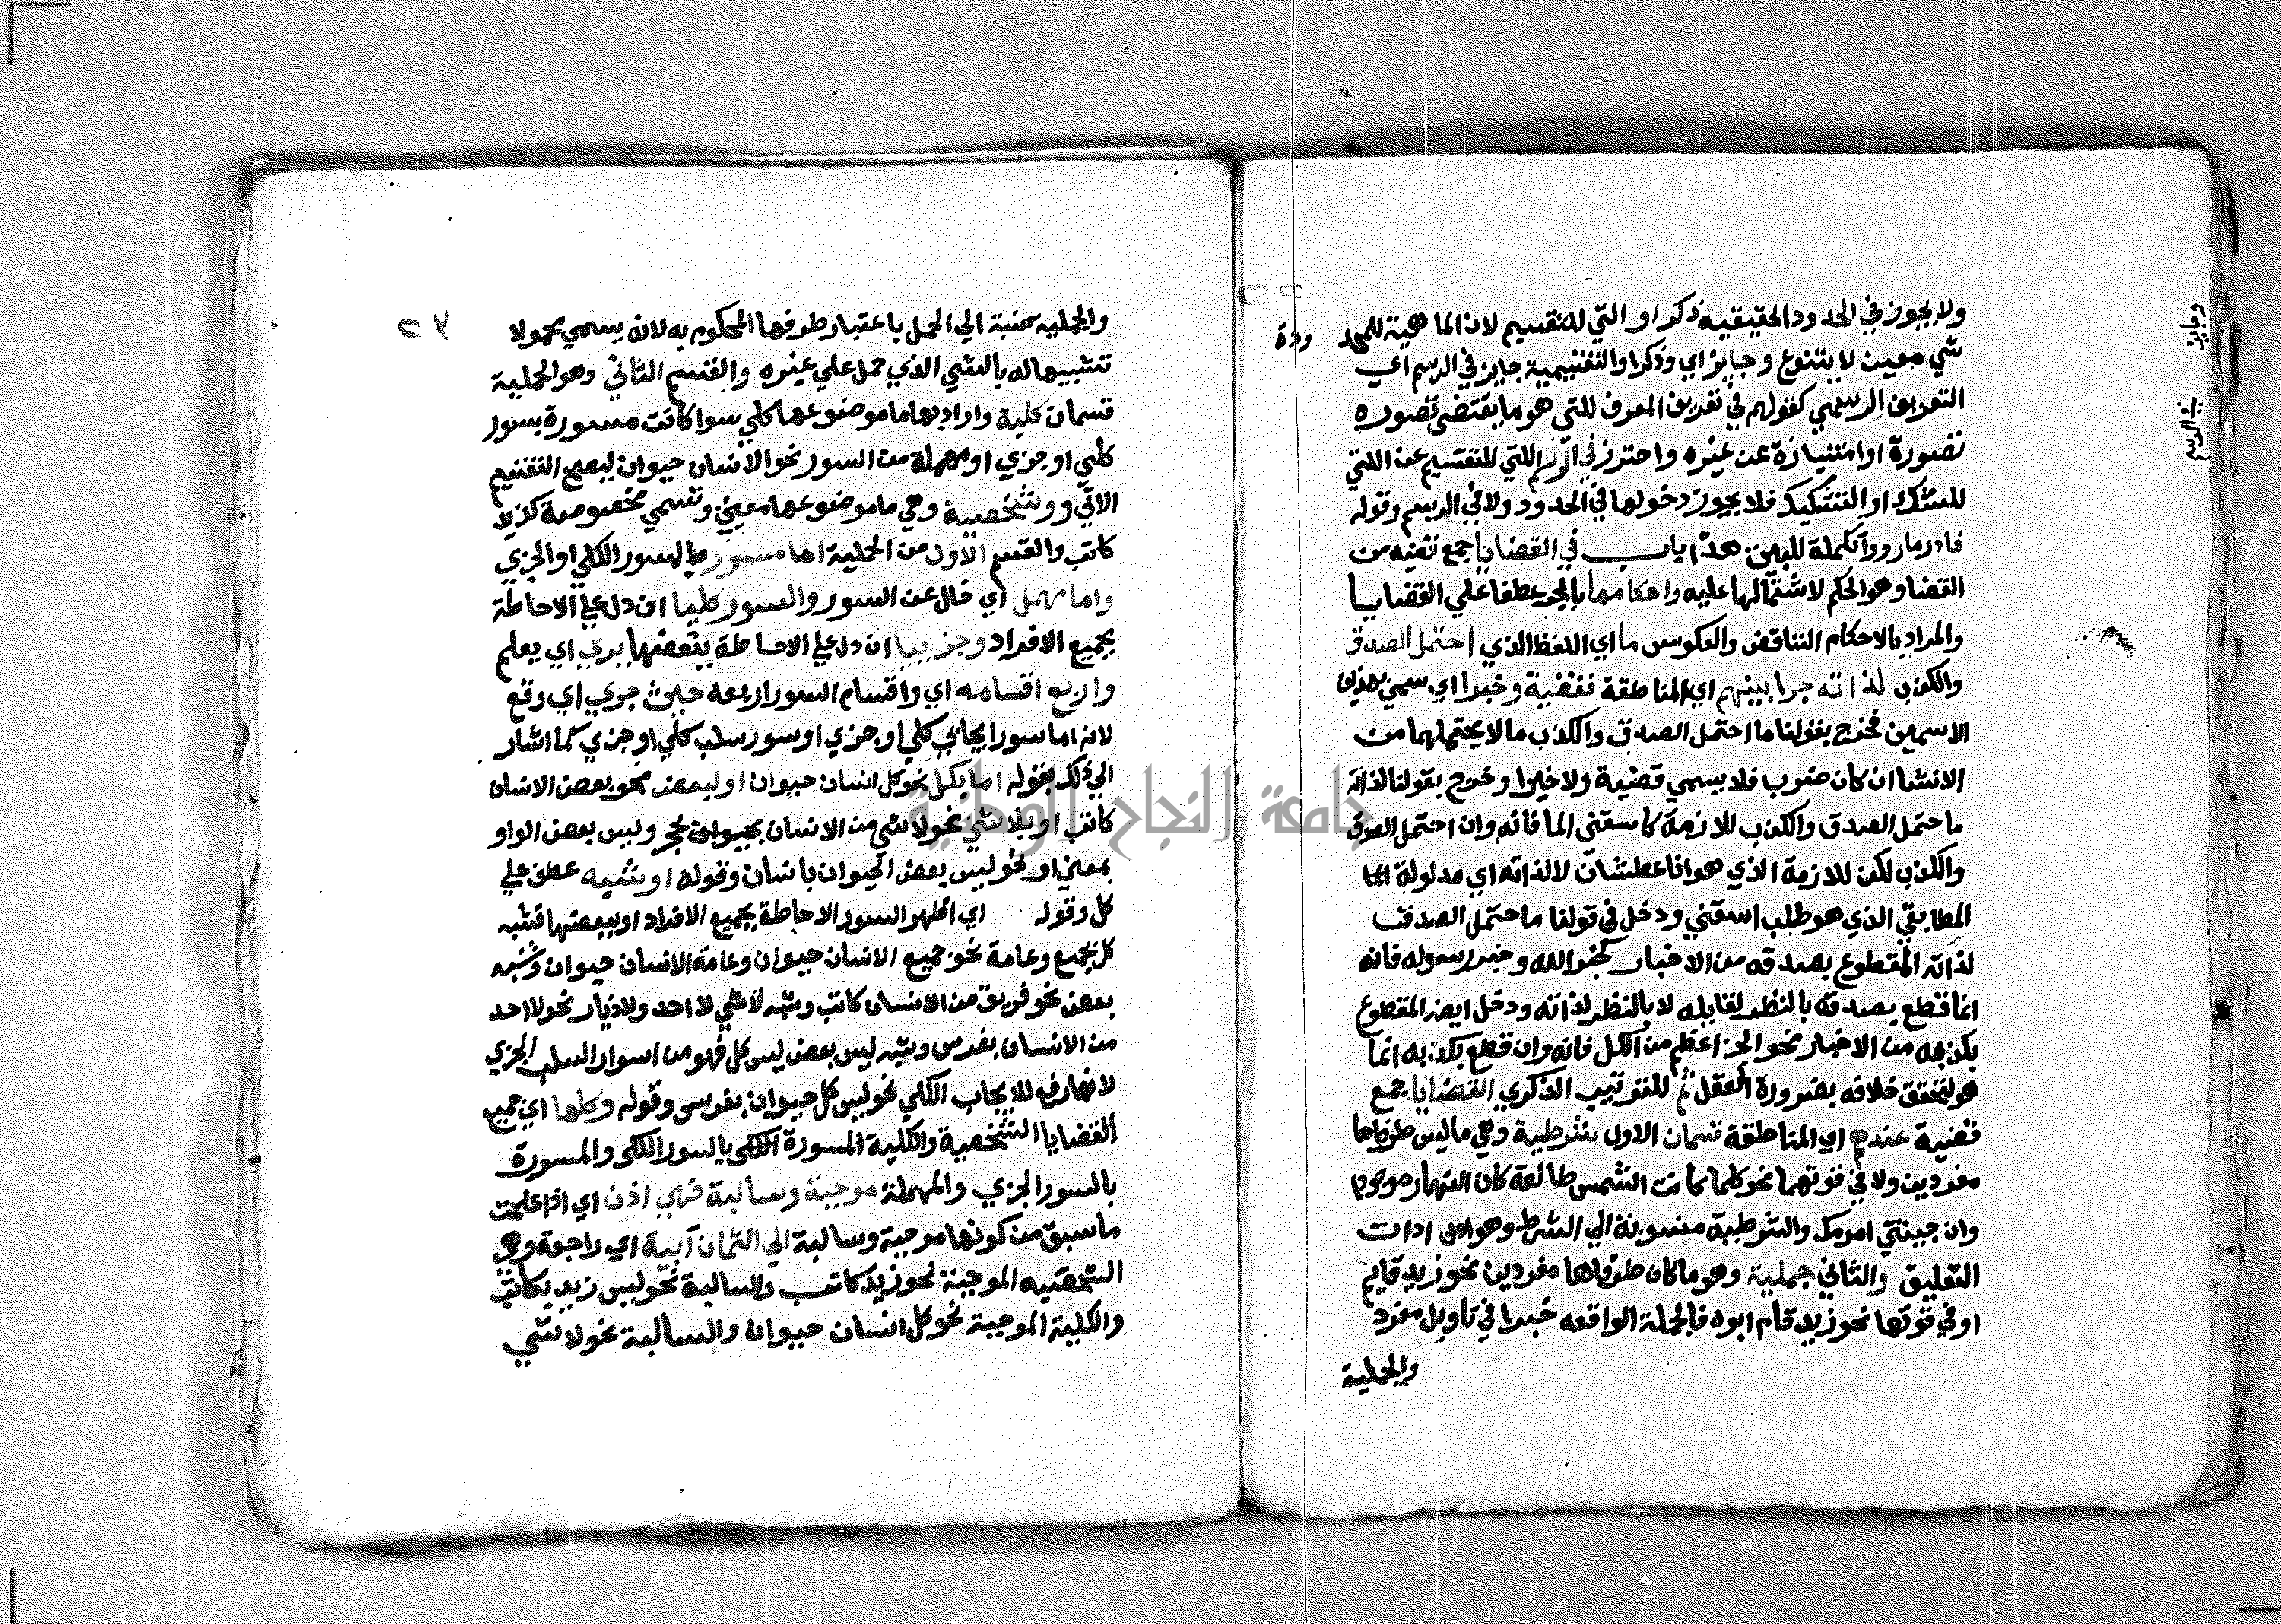 ولا يجوز في الحدود الحقيقيه ذكر او التي للتقسيم لان الماهية للمحد
ودة
شي معين لا يتنوع وجايز اي وذكر او التقسيمية جايز في الرسم اي
التعريف الرسمي كقولهم في تعريف المعرف للشي هو ما يقتضي تصوره
تصورة او امتيازة عن غيره واحترز في الرسم اللتي للتقسيم عن اللتي
للشك او التشكيك فلا يجوز دخولها في الحدود ولا في الرسم وقوله
فادر ما رووا تكملة للبيت هذا باب في القضايا جمع قضيه من
القضا وهو الحكم لاشتمالها عليه واحكامها بالجر عطفا علي القضايا
والمراد بالاحكام التناقض والعكوس ما اي اللفظ الذي احتمل الصدق
والكذب لذاته جرا بينهم اي المناطقة قضية وخبرا اي سمي بهذين
الاسمين فخرج بقولنا ما احتمل الصدق والكذب ما لا يحتملهما من
الانشا ان كان ضرب فلا يسمي قضية ولا خبرا وخرج بقولنا لذاته
ما حتمل الصدق والكذب للازمة كاسقني الما فانه وان احتمل الصدق
والكذب لكن للازمة الذي هو انا عطشان لا لذاته اي مدلولة
المطابقي الذي هو طلب اسقني ودخل في قولنا ما حتمل الصدق
لذاته المقطوع بصدقه من الاخبار كخبر الله وخبر رسوله فانه
انما قطع بصدقه بالنظر لقايله لا بالنظر لذاته ودخل ايضا المقطوع
بكذبه من الاخبار نحو الجزا عظم من الكل فانه وان قطع بكذبه انما
هو لتحقق خلافه بضرورة العقل ثم للترتيب الذكري القضايا جمع
قضية عندهم اي المناطقة قسمان الاول شرطية وهي ما ليس طرفاها
مفردين ولا في قوتهما نحو كلما كانت الشمس طالعة كان النهار موجودا
وان جيتني امرمك والشرطية منسوبة الي الشرط وهو ادات
التعليق والثاني حملية وهو ما كان طرفاها مفردين نحو زيد قايم
او في قوتها نحو زيد قام ابوه فالجملة الواقعه خبرا في تاويل مفرد
والحملية
وجايز
في الرسم
٢٧
والحمليه منسبة الي الحمل باعتبار طرفها المحكوم به لانه يسمي محمولا
تشبيها له بالشي الذي حمل علي غيره والقسم الثاني وهو الحملية
قسمان كلية واراد بها ما موضوعها كلي سوا كانت مسورة بسور
كلي او جزي او مهملة من السور نحو الانسان حيوان ليصح التقسيم
الاتي وشخصية وهي ما موضوعها معين وتسمي مخصوصة كزيد
كاتب والقسم الاول من الحملية اما مسور بالسور الكلي او الجزي
واما مهمل اي خال عن السور والسور كليا ان دل علي الاحاطة
بجميع الافراد وجزييا ان دل علي الاحاطة ببعضها يري اي يعلم
واربع اقسامه اي واقسام السور اربعه حيث جري اي وقع
لانه اما سور ايجابي كلي او جزي او سور سلب كلي او جزي كما اشار
الي ذلك بقوله اما بكل نحو كل انسان حيوان او ببعض نحو بعض الانسان
كاتب او بلا شي نحو لا شي من الانسان بحيوان بحجر وليس بعض الواو
بمعني او نحو ليس بعض الحيوان بانسان وقوله او شبه عطف علي
كل وقوله اي اظهر السور الاحاطة بجميع الافراد او ببعضها فشبه
كل جميع وعامة نحو جميع الانسان حيوان وعامة الانسان حيوان وشبه
بعض نحو فريق من الانسان كاتب وشبه لا شي لا احد ولا ديار نحو لا احد
من الانسان بفرس وشبه ليس بعض ليس كل فهو من اسوار السلب الجزي
لانها رفع للايجاب الكلي نحو ليس كل حيوان بفرس وقوله وكلها اي جميع
القضايا الشخصية والكلية المسورة الكلي بالسور الكلي والمسورة
بالسور الجزي والمهملة موجبة وسالبة فهي اذن اي اذا علمت
ما سبق من كونها موجبة وسالبة الي الثمان آيبة اي راجعة وهي
الشخصيه الموجبة نحو زيد كاتب والسالبة نحو ليس زيد بكاتب
والكلية الموجبة نحو كل انسان حيوان والسالبة نحو لا شي
جامعة النجاح الوطنية